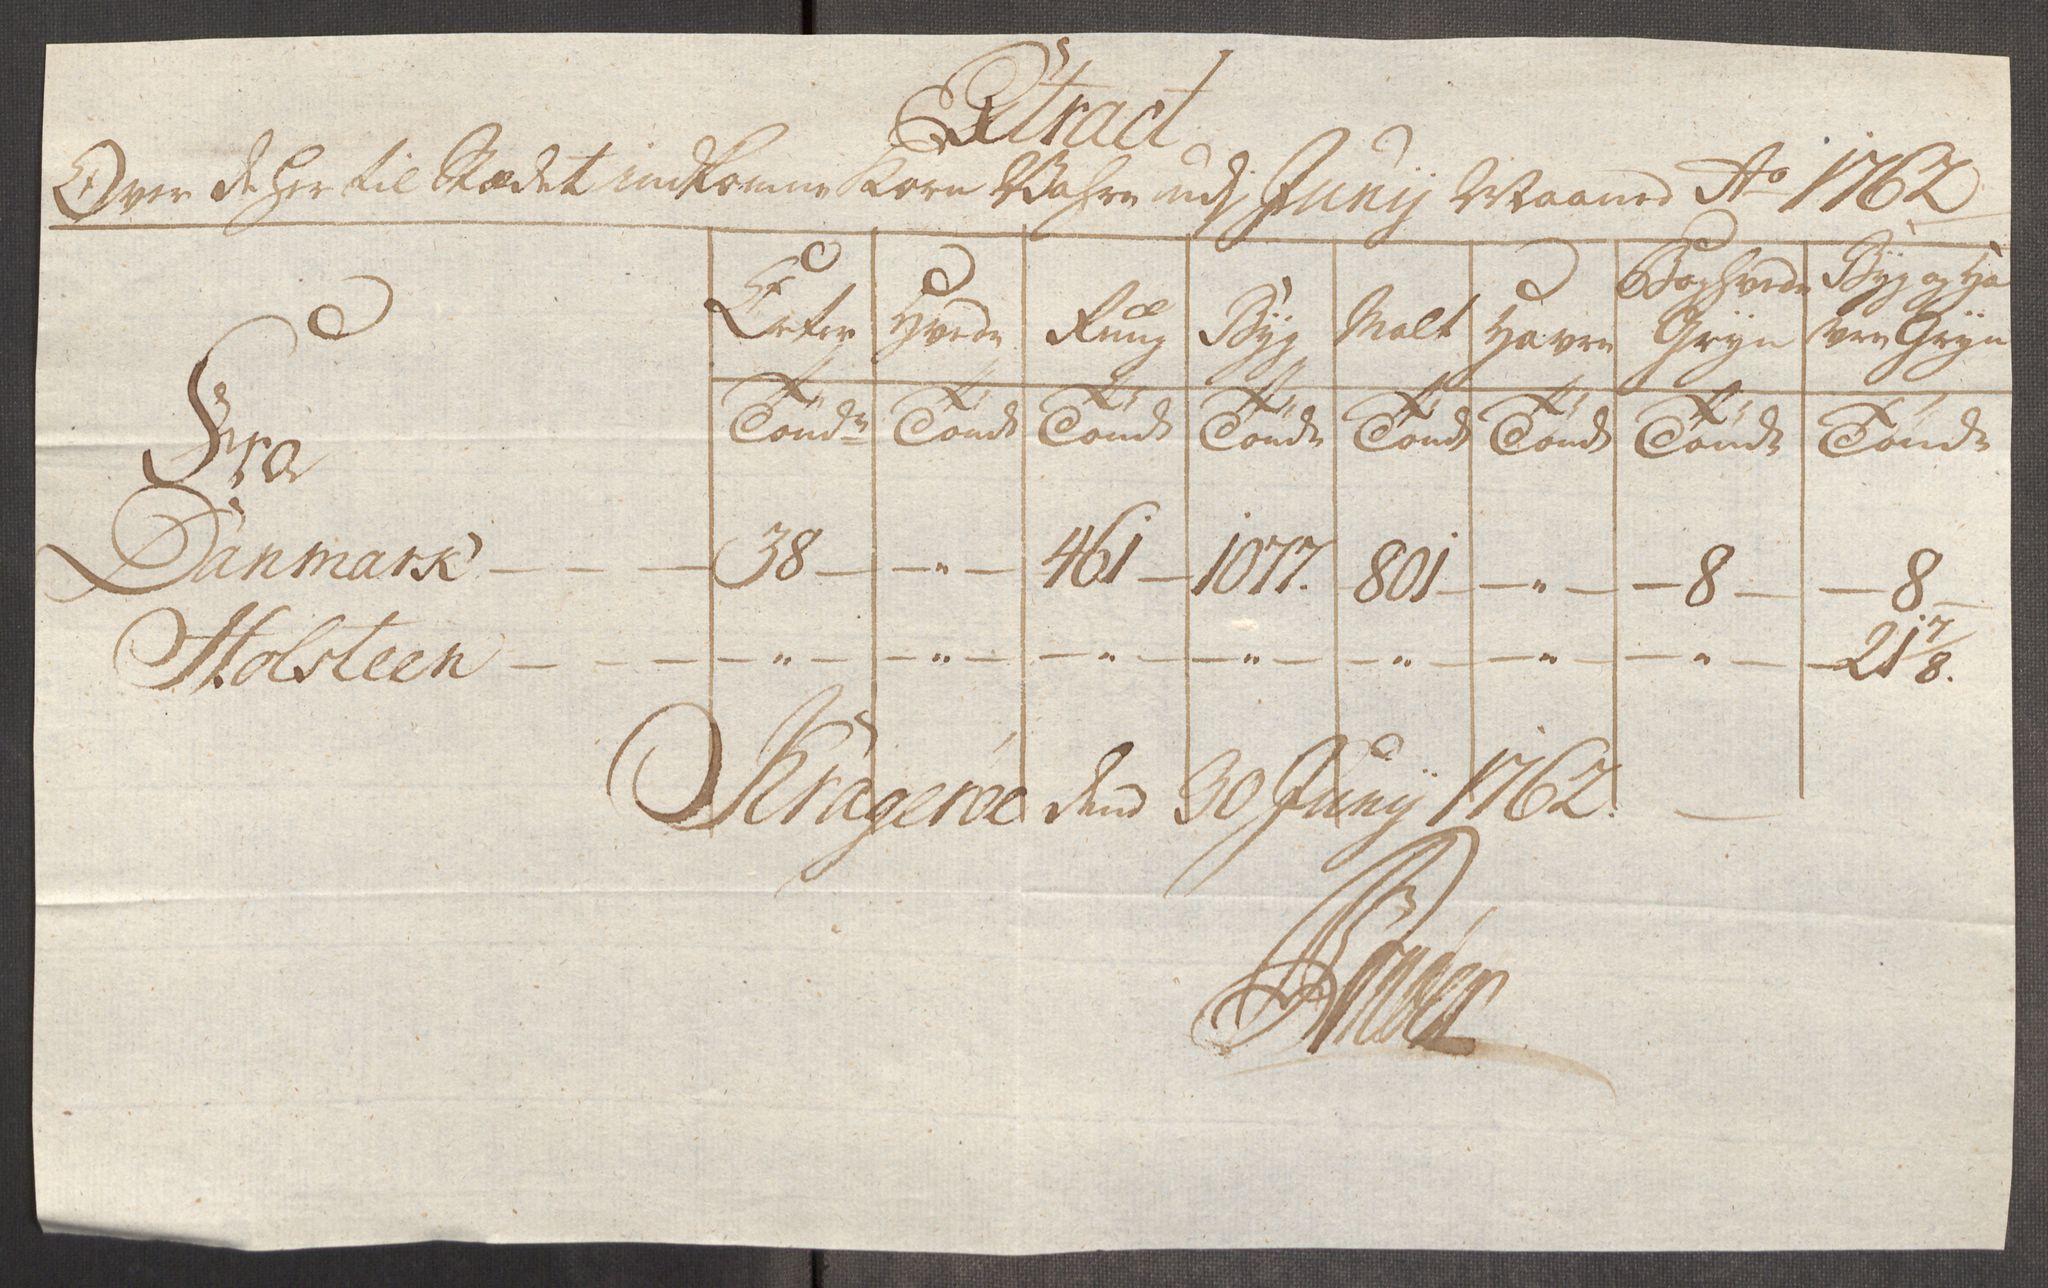 Extract
Over de her til Stædet indkomne Korn Vahre udj Junij Maaned Ao 1762
Erter Hvede Rug Byg Malt Havre Boghvede Gryn Byg og Havre Gryn
Fra
Tønde Tønde Tønde Tønde Tønde Tønde Tønde Tønde
Danmark — — — 38 — — „ — 461 — 1077. 801 — — „ — — 8 — — 8 —
Holsteen — — — — „ — — „ — — „ — — „ — — „ — — „ — — „ — — 21 7/8.
Kragerøe dend 30 Junij 1762. —